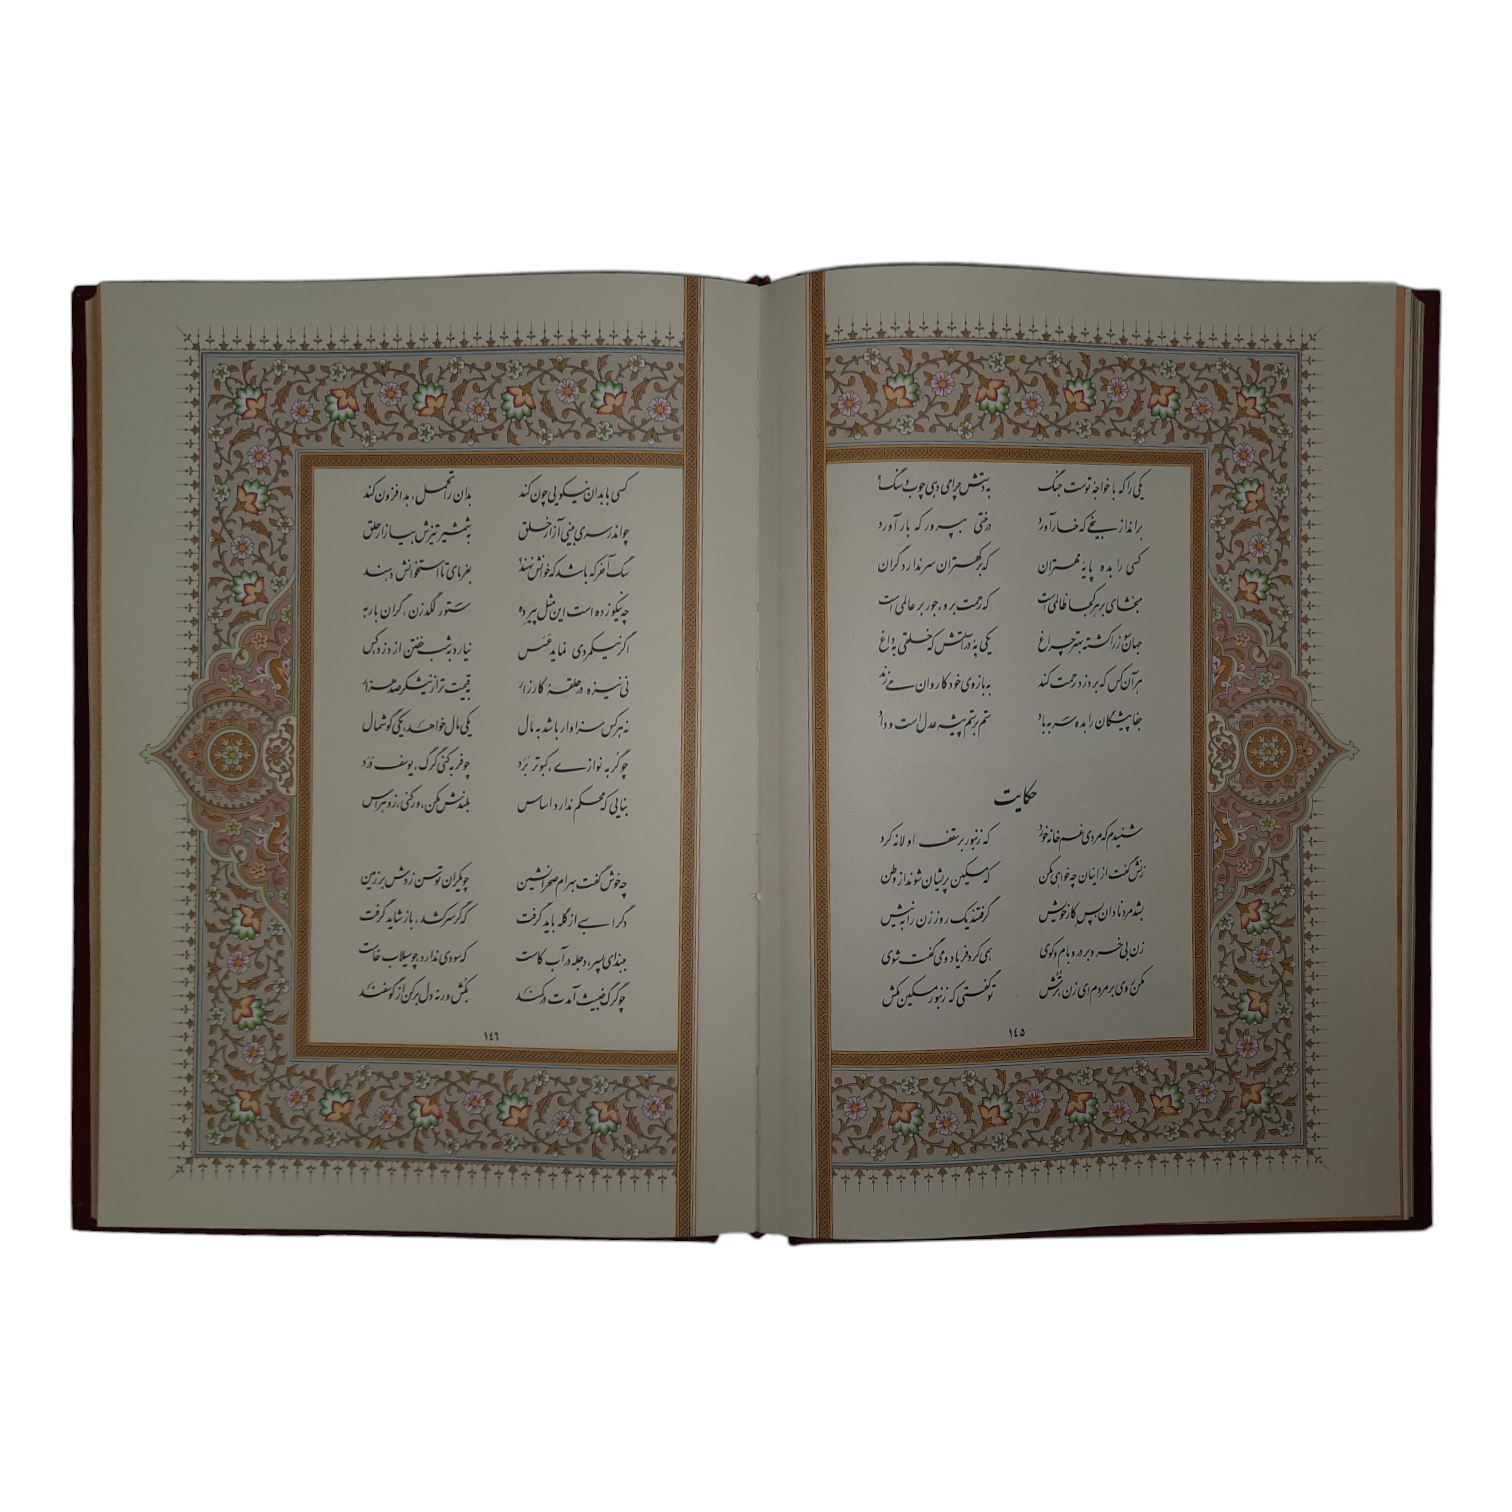 یکی را که با خواجهٔ توست جنگ به دستش چرا می دهی چوب و سنگ؟
برانداز بیخی که خار آورد درختی بپرور که بار آورد
کسی را بده پایهٔ مهتران که بر کهتران سر ندارد گران
مبخشای بر هر کجا ظالمی است که رحمت برو، جور بر عالمی است
جهان سوز را کشته بهتر چراغ یکی به در آتش که خلقی به داغ
هر آن کس که بر دزد رحمت کند به بازوی خود کاروان می زند
جفاپیشگان را بده سر به باد ستم بر ستم پیشه عدل است و داد
حکایت
شنیدم که مردی غم خانه خورد که زنبور بر سقف او لانه کرد
زنش گفت از اینان چه خواهی مکن که مسکین پریشان شوند از وطن
بشد مرد نادان پس کار خویش گرفتند یک روز زن را به نیش
زن بی خرد بر در و بام و کوی همی کرد فریاد و می گفت شوی
مکن روی بر مردم ای زن ترش تو گفتی که زنبور مسکین مکش
۱٤٥
کسی با بدان نیکویی چون کند بدان را تحمل، بد افزون کند
چو اندر سری بینی آزار خلق به شمشیر تیزش بیازار حلق
سگ آخر که باشد که خوانش نهند؟ بفرمای تا استخوانش دهند
چه نیکو زده است این مثل پیر ده ستور لگدزن، گران بار به
اگر نیکمردی نماید عسس نیارد به شب خفتن از دزد، کس
نی نیزه در حلقهٔ کارزار به قیمت تر از نیشکر صد هزار
نه هر کس سزاوار باشد به مال یکی مال خواهد، یکی گوشمال
چو گربه نوازی، کبوتر برد چو فربه کنی گرگ، یوسف درد
بنایی که محکم ندارد اساس بلندش مکن، ور کنی، زو هراس
چه خوش گفت بهرام صحرانشین چو یکران توسن زدش بر زمین
دگر اسبی از گله باید گرفت که گر سر کشد، باز شاید گرفت
ببند ای پسر، دجله در آب کاست که سودی ندارد چو سیلاب خاست
چو گرگ خبیث آمدت در کمند بکش ورنه دل بر کن از گوسفند
۱٤٦